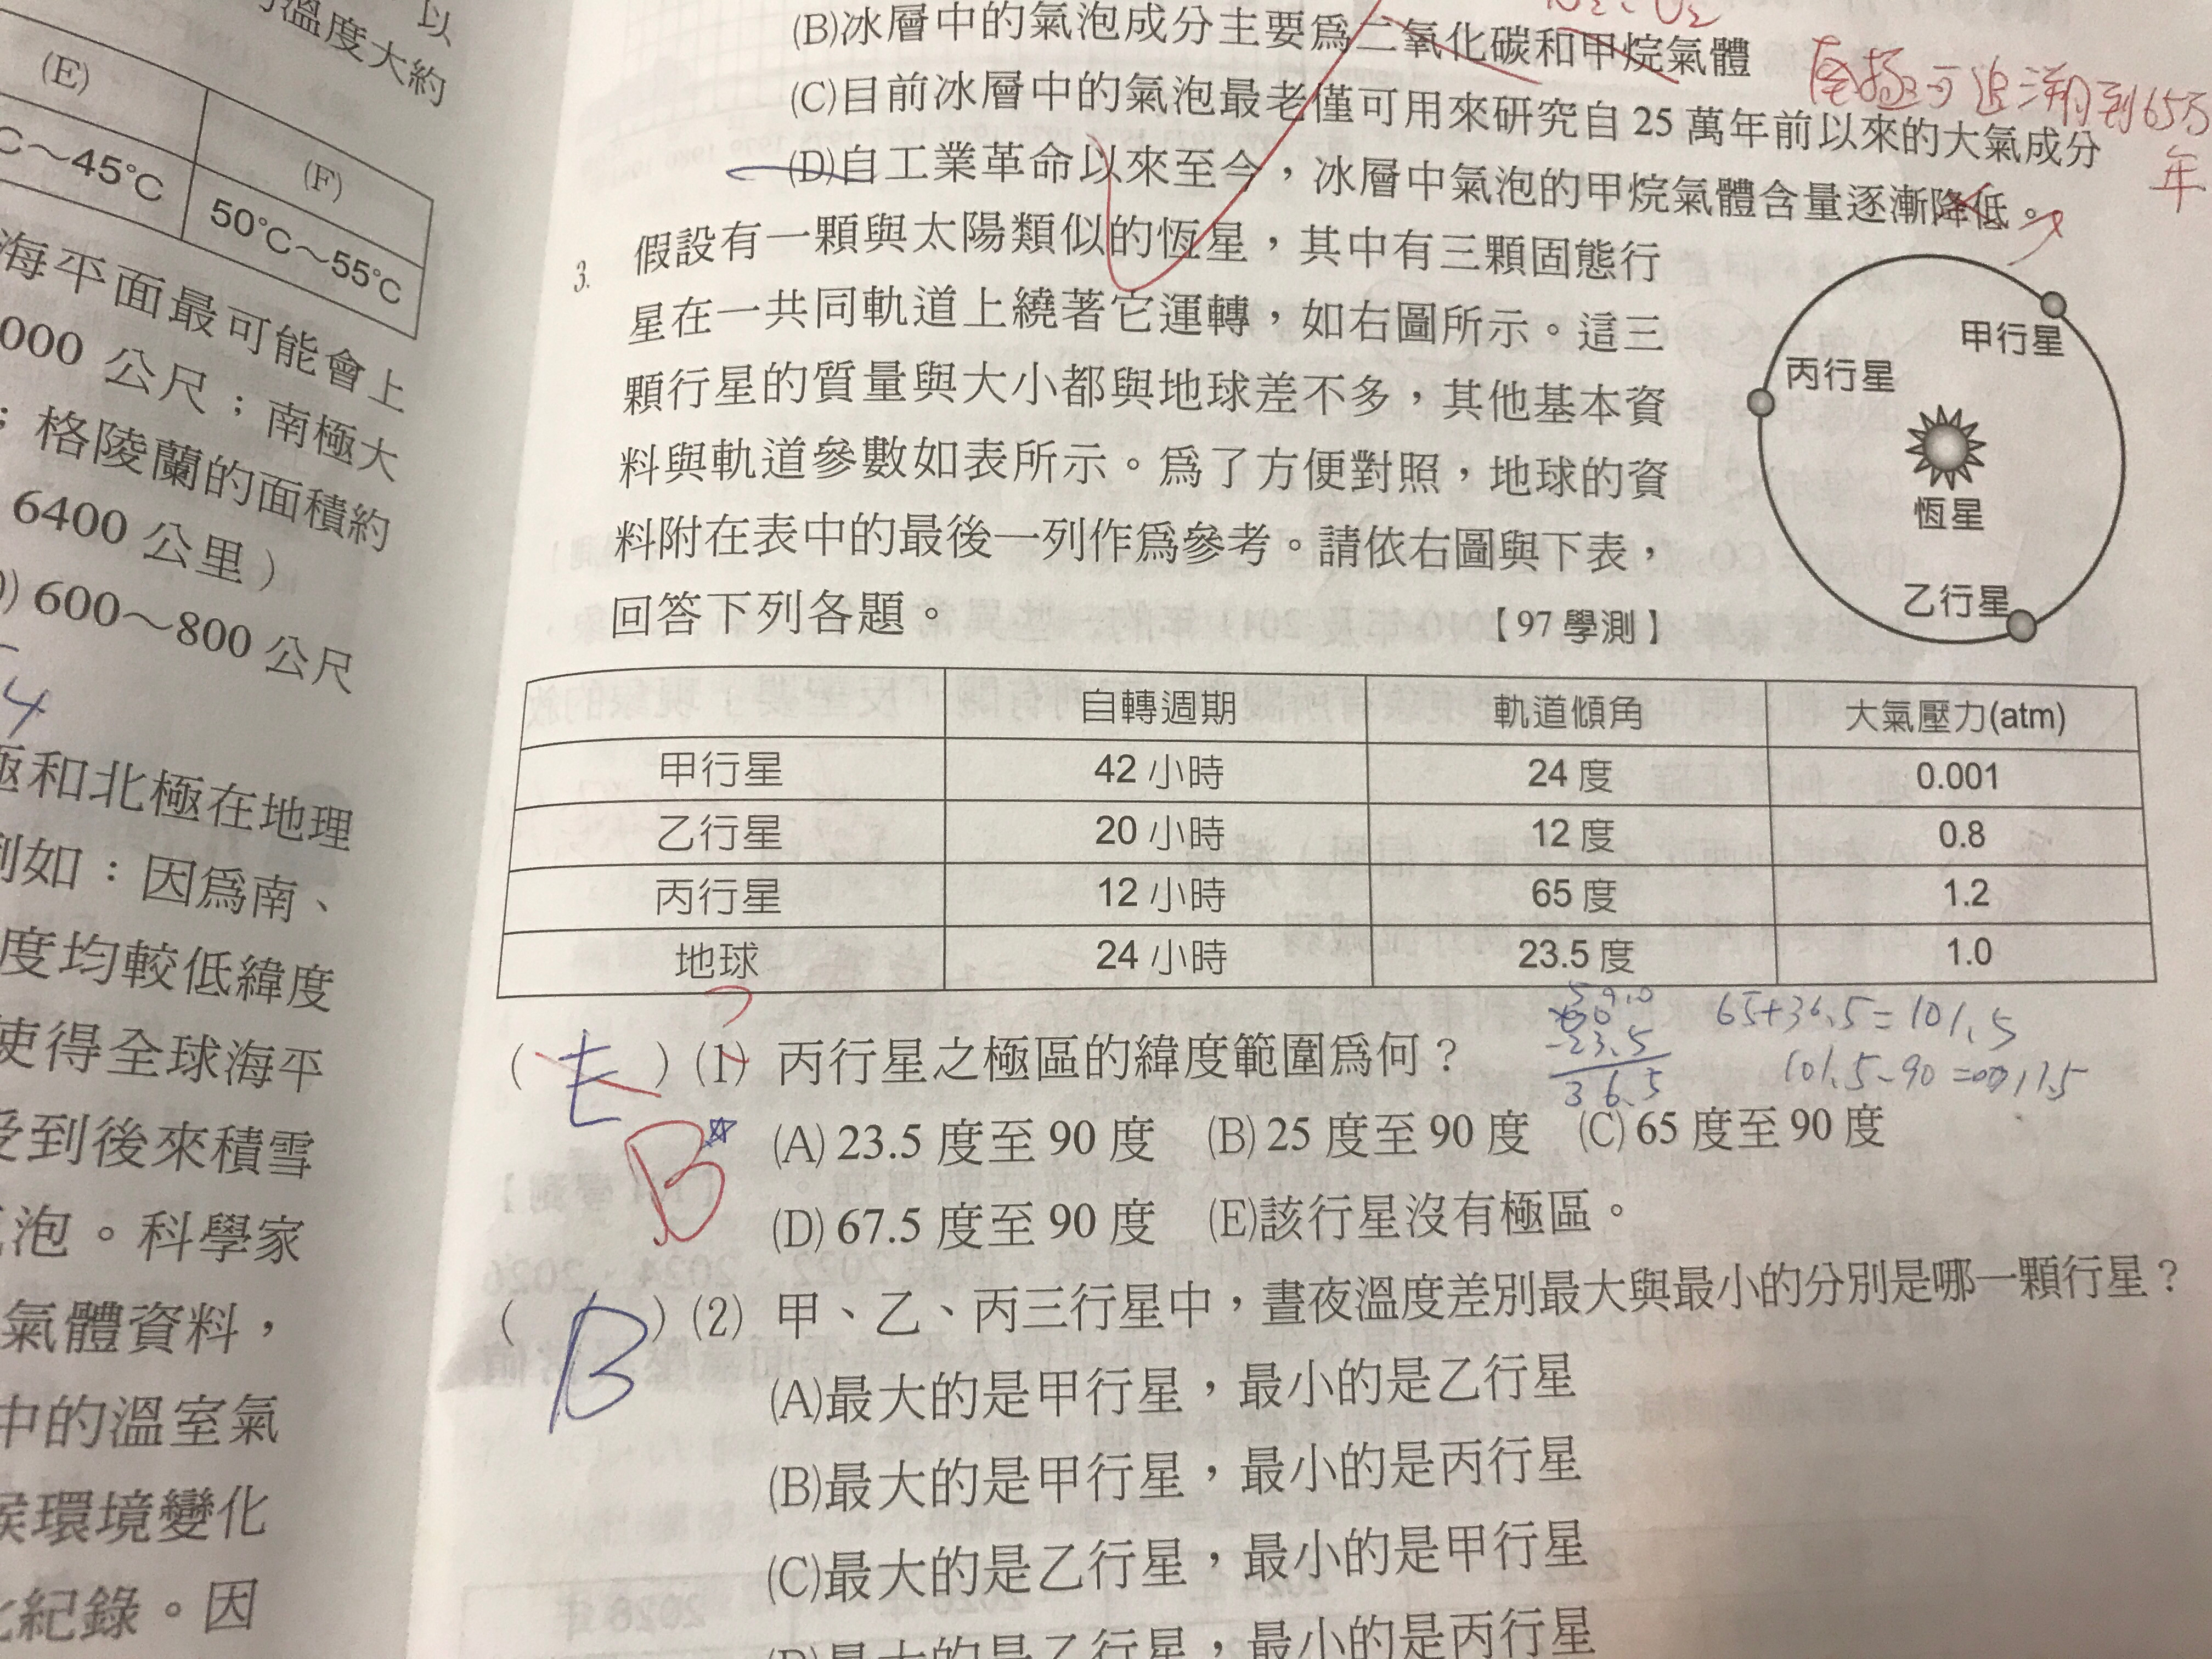 以
溫度大約
(E)
(F)
℃～45℃
50℃～55℃
海平面最可能會上
000 公尺；南極大
；格陵蘭的面積約
6400 公里）
) 600～800 公尺
4
極和北極在地理
列如：因為南、
度均較低緯度
使得全球海平
受到後來積雪
泡。科學家
氣體資料，
中的溫室氣
候環境變化
紀錄。因
(B)冰層中的氣泡成分主要為二氧化碳和甲烷氣體
(C)目前冰層中的氣泡最老僅可用來研究自 25 萬年前以來的大氣成分
南極可追溯到65万
年
(D)自工業革命以來至今，冰層中氣泡的甲烷氣體含量逐漸降低。
3. 假設有一顆與太陽類似的恆星，其中有三顆固態行
星在一共同軌道上繞著它運轉，如右圖所示。這三
顆行星的質量與大小都與地球差不多，其他基本資
料與軌道參數如表所示。為了方便對照，地球的資
料附在表中的最後一列作為參考。請依右圖與下表，
回答下列各題。 【97 學測】
甲行星
丙行星
恆星
乙行星
自轉週期 軌道傾角 大氣壓力(atm)
甲行星 42 小時 24 度 0.001
乙行星 20 小時 12 度 0.8
丙行星 12 小時 65 度 1.2
地球 24 小時 23.5 度 1.0
59.0
-23.5
36.5
65+36.5=101.5
101.5-90=11.5
( E ) (1) 丙行星之極區的緯度範圍為何？
B
(A) 23.5 度至 90 度 (B) 25 度至 90 度 (C) 65 度至 90 度
(D) 67.5 度至 90 度 (E)該行星沒有極區。
( B ) (2) 甲、乙、丙三行星中，晝夜溫度差別最大與最小的分別是哪一顆行星？
(A)最大的是甲行星，最小的是乙行星
(B)最大的是甲行星，最小的是丙行星
(C)最大的是乙行星，最小的是甲行星
(D)最大的是乙行星，最小的是丙行星